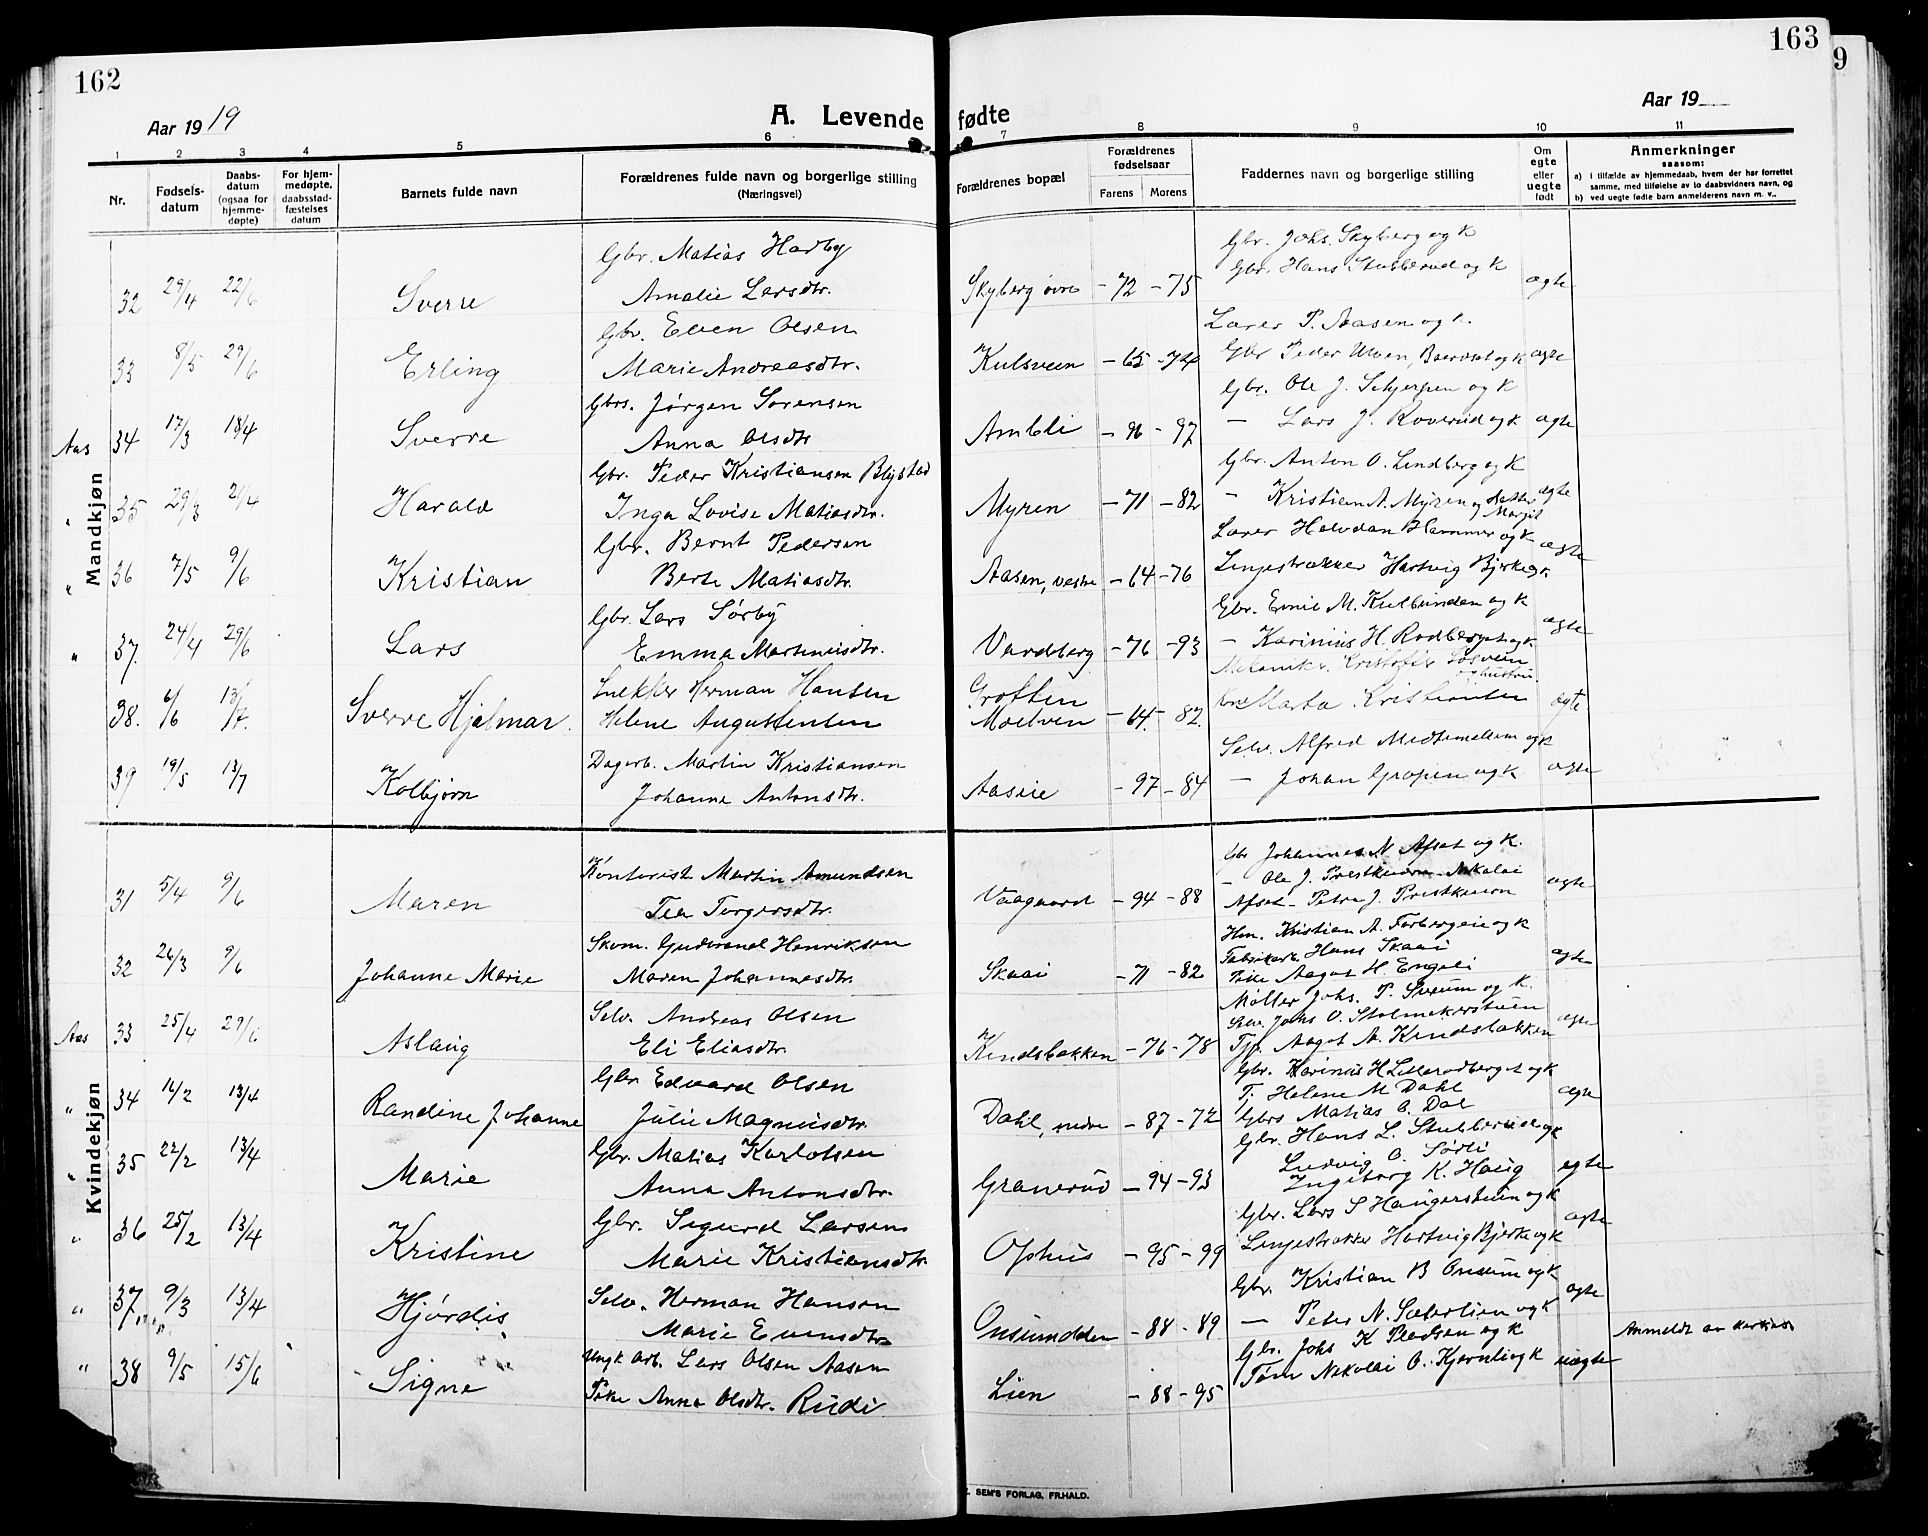 162
163
9
Aar 1919
A. Levende fødte
Aar 19
1 2 3 4 5 6 7 8 9 10 11
Nr.
Fødsels-
datum
Daabs-
datum
(ogsaa for
hjemme-
døpte)
For hjem-
medøpte,
daabsstad-
fæstelses
datum
Barnets fulde navn
Forældrenes fulde navn og borgerlige stilling
(Næringsvei)
Forældrenes bopæl
Forældrenes
fødselsaar
Farens Morens
Faddernes navn og borgerlige stilling
Om
egte
eller
uegte
født
Anmerkninger
saasom:
a) i tilfælde av hjemmedaab, hvem der har forrettet
samme, med tilføielse av to daabsvidners navn, og
b) ved uegte fødte barn anmelderens navn m. v..
Mandkjøn
Gbr. Matias Harby Gbr. Johs. Skyberg og K
32 29/4 22/6 Sverre Amalie Larsdtr. Skyberg øvre -72 -75 Gbr. Hans Stubberud og K ægte
Gbr. Even Olsen Lærer P. Aasen og K.
33 8/5 29/6 Erling Marie Andreasdtr. Kulsveen -65 -74 Gbr Peder Ulven, og K ægte
Gbrs. Jørgen Sørensen Gbr. Ole J. Schjerpen og K
Aas 34 17/3 13/4 Sverre Anna Olsdtr Ambli -96 -97 - Lars J. Roverud og K ægte
Gbr. Peder Kristiansen Blystad Gbr. Anton O. Lundberg og K
" 35 29/3 21/4 Harald Inga Lovise Matiasdtr. Myren -71 -82 - Kristian A. Myren og datter Margit ægte
Gbr. Bernt Pedersen Lærer Halvdan Hammer og K
" 36 7/5 9/6 Kristian Berte Matiasdtr. Aasen, vestre -64 -76 Linjestrækker Hartvig Bjørke ægte
Gbr. Lars Sørby Gbr. Emil M. Kulbunden og K
" 37. 24/4 29/6 Lars Emma Martiniusdtr. Vardberg -76 -93 - Karinius H. Rodberget og K. ægte
Snekker Herman Hansen Grøften Mekanikr. Kristofer og hustru
38. 6/6 13/7. Sverre Hjalmar. Helene Augustensen Moelven -64. -82. Marta Kristiansen ægte
Dagarb. Martin Kristiansen Selv. Alfred Medhemellem og K
39 19/5 13/7 Kolbjørn Johanne Antonsdtr. Aaseie -97 -84 - Johan Gropen og K ægte
Kvindekjøn
Kontorist Martin Amundsen Gbr Johannes N Afset og K.
31 5/4 9/6 Maren Tea Torgersdtr. Vaagaard -94 -88 - Ole J. Prestkværn Nikolai ægte
Afset - Petra J. Prestkværn
Skom. Gudbrand Henriksen Hm. Kristian A. Farbergeie og K
32 26/3 9/6 Johanne Marie Maren Johannesdtr. Skaai -71 -82 Fabrikarb. Hans Skaai ægte
Pike Aagot H. Engeli
Selv. Andreas Olsen Møller Johs. P. Sveum og K.
Aas 33 25/4 29/6 Aslaug Eli Eliasdtr. Kindsbakken -76 -78 Selv. Johs O. Stolmakerstuen ægte
Tjp. Aagot A. Kindsbakken
Gbr Edvard Olsen Gbr. Karinius H Lillerodberget og K
" 34 16/2 13/4 Randine Johanne Julie Magnusdtr. Dahl, nedre -87 -72 T. Helene M Dahl ægte
Gbrs Matias O. Dal
Gbr. Matias Karlotsen Gbr. Hans L. Stubberud og K
" 35 22/2 13/4 Marie Anna Antonsdtr. Granerud -94 -93 Ludvig O. Sørli ægte
Ingeborg K. Haug
Gbr. Sigurd Larsen Gbr. Lars S Haugerstuen og K
" 36 25/2 13/4 Kristine Marie Kristiansdtr. Ophus -95 -99 Linjestrækker Hartvig Bjørke og K ægte
Selv. Herman Hansen Gbr. Kristian B Onsum og K
" 37 9/3 13/4 Hjørdis Marie Evensdtr. Onsumdden -88 -89 - Peter N. Sæterlien og K ægte
Ungk arb. Lars Olsen Aasen Gbr. Johs K Pladsen og K
" 38 9/5 15/6 Signe Pike Anna Olsdtr. Rudi Lien -88 -95 Tøm Nikolai O. Kjernli og K uægte Anmeldt av
SEM'S FORLAG, FR.HALD.